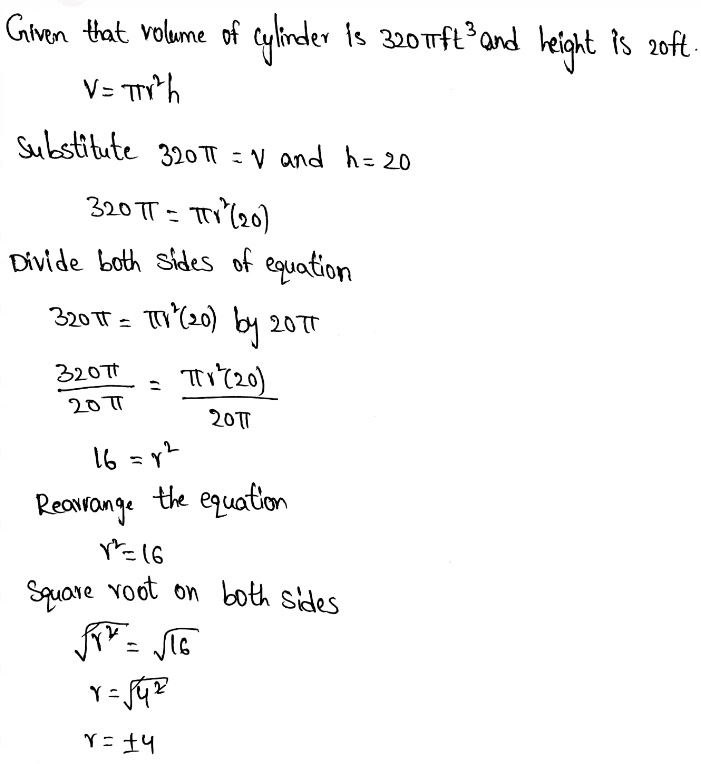 Given that volume of cylinder is 320πft³ and height is 20ft.
V = πr²h
Substitute 320π = V and h = 20
320π = πr²(20)
Divide both sides of equation
320π = πr²(20) by 20π
320π/20π = πr²(20)/20π
16 = r²
Rearrange the equation
r² = 16
Square root on both sides
√r² = √16
r = √4²
r = ±4